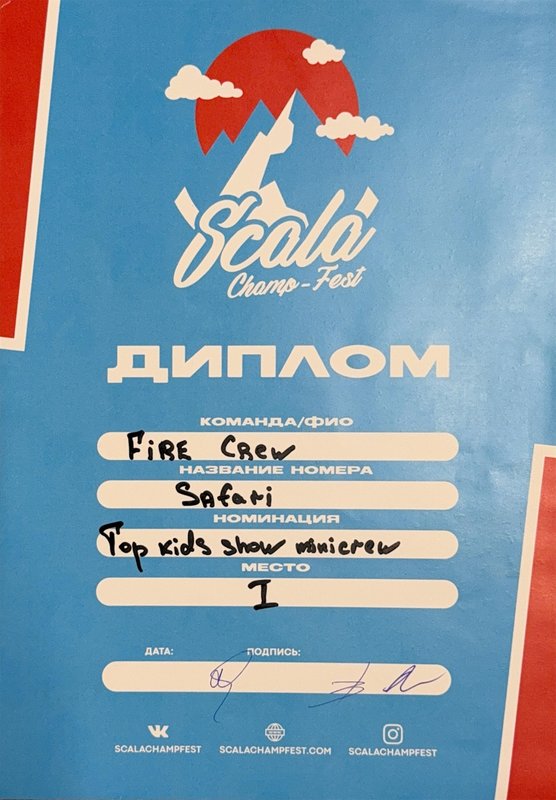 Scala
Champ-Fest
ДИПЛОМ
КОМАНДА/ФИО
FiRE CRew
НАЗВАНИЕ НОМЕРА
SAfari
НОМИНАЦИЯ
Top kids show minicrew
МЕСТО
I
ДАТА: ПОДПИСЬ:
SCALACHAMPFEST SCALACHAMPFEST.COM SCALACHAMPFEST